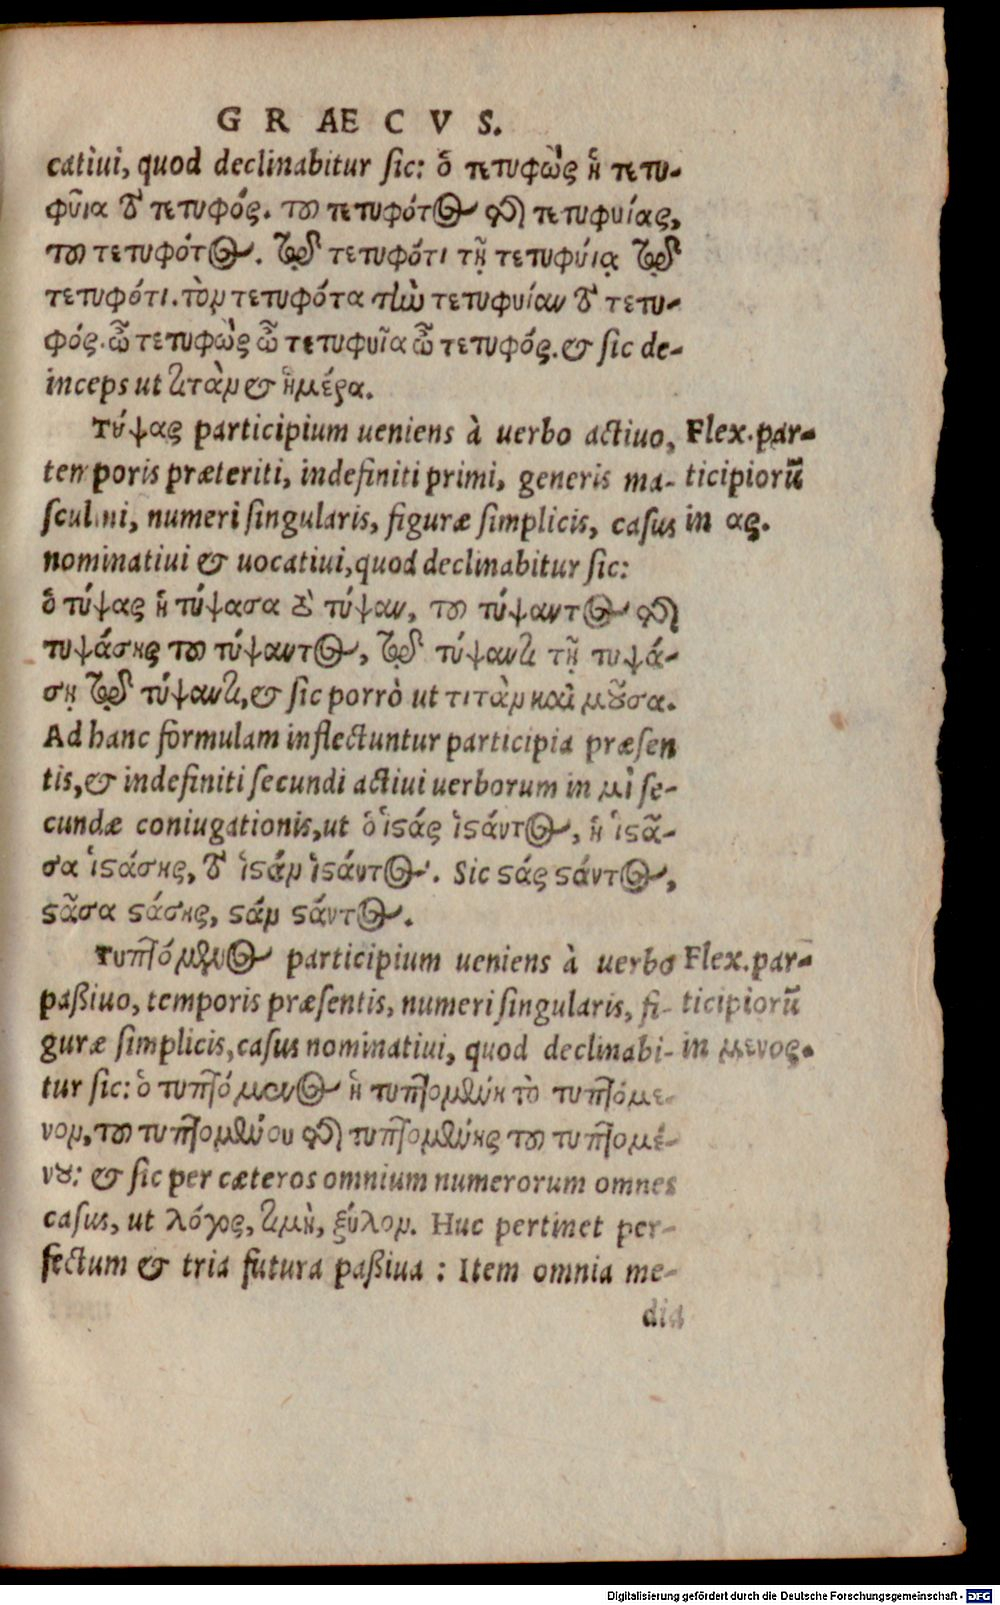 GRAECVS.
catiui, quod declinabitur sic: ὁ τετυφὼς ἡ τετυ-
φῦια τὸ τετυφός. τοῦ τετυφότος τῆς τετυφυίας,
τοῦ τετυφότος. τῷ τετυφότι τῇ τετυφύιᾳ τῷ
τετυφότι. τὸν τετυφότα τὴν τετυφυίαν τὸ τετυ-
φός. ὦ τετυφὼς ὦ τετυφυῖα ὦ τετυφός. & sic de-
inceps ut τιτὰν & ἡμέρα.
Τύψας participium ueniens à uerbo actiuo, Flex. par-
temporis præteriti, indefiniti primi, generis ma- ticipiorũ
sculini, numeri singularis, figuræ simplicis, casus in ας.
nominatiui & uocatiui, quod declinabitur sic:
ὁ τύψας ἡ τύψασα τὸ τύψαν, τοῦ τύψαντος τῆς
τυψάσης τοῦ τύψαντος, τῷ τύψαντι τῇ τυψά-
σῃ τῷ τύψαντι, & sic porrò ut τιτὰν καὶ μοῦσα.
Ad hanc formulam inflectuntur participia præsen
tis, & indefiniti secundi actiui uerborum in μὶ se-
cundæ coniugationis, ut ὁ ἱστάς ἱστάντος, ἡ ἱστᾶ-
σα ἱστάσης, τὸ ἱστάν ἱστάντος. Sic στάς στάντος,
στᾶσα στάσης, στάν στάντος.
Τυπτόμενος participium ueniens à uerbo Flex. par-
paßiuo, temporis præsentis, numeri singularis, fi- ticipiorũ
guræ simplicis, casus nominatiui, quod declinabi- in μενος.
tur sic: ὁ τυπτόμενος ἡ τυπτομένη τὸ τυπτόμε-
νον, τοῦ τυπτομένου τῆς τυπτομένης τοῦ τυπτομέ-
νου: & sic per cæteros omnium numerorum omnes
casus, ut λόγος, τιμὴ, ξύλον. Huc pertinet per-
fectum & tria futura paßiua : Item omnia me-
dia
Digitalisierung gefördert durch die Deutsche Forschungsgemeinschaft - DFG